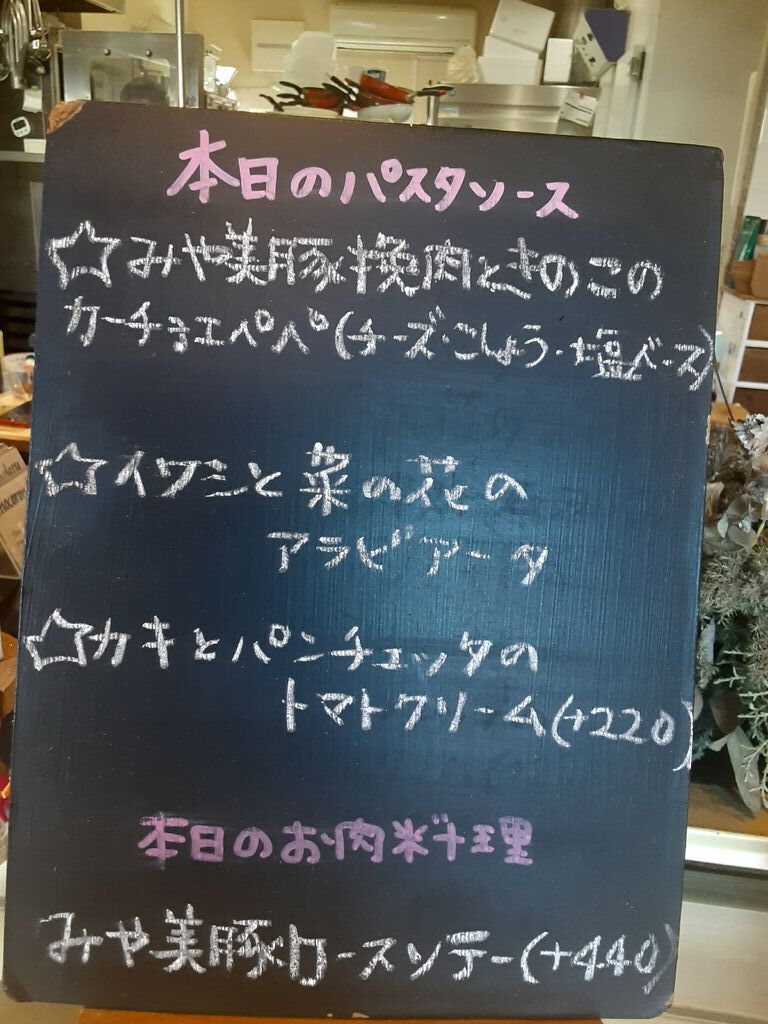 本日のパスタソース
☆みや美豚挽肉ときのこの
カーチョエペペ(チーズ・こしょう・塩ベース)
☆イワシと菜の花の
アラビアータ
☆カキとパンチェッタの
トマトクリーム(+220)
本日のお肉料理
みや美豚ロースソテー(+440)